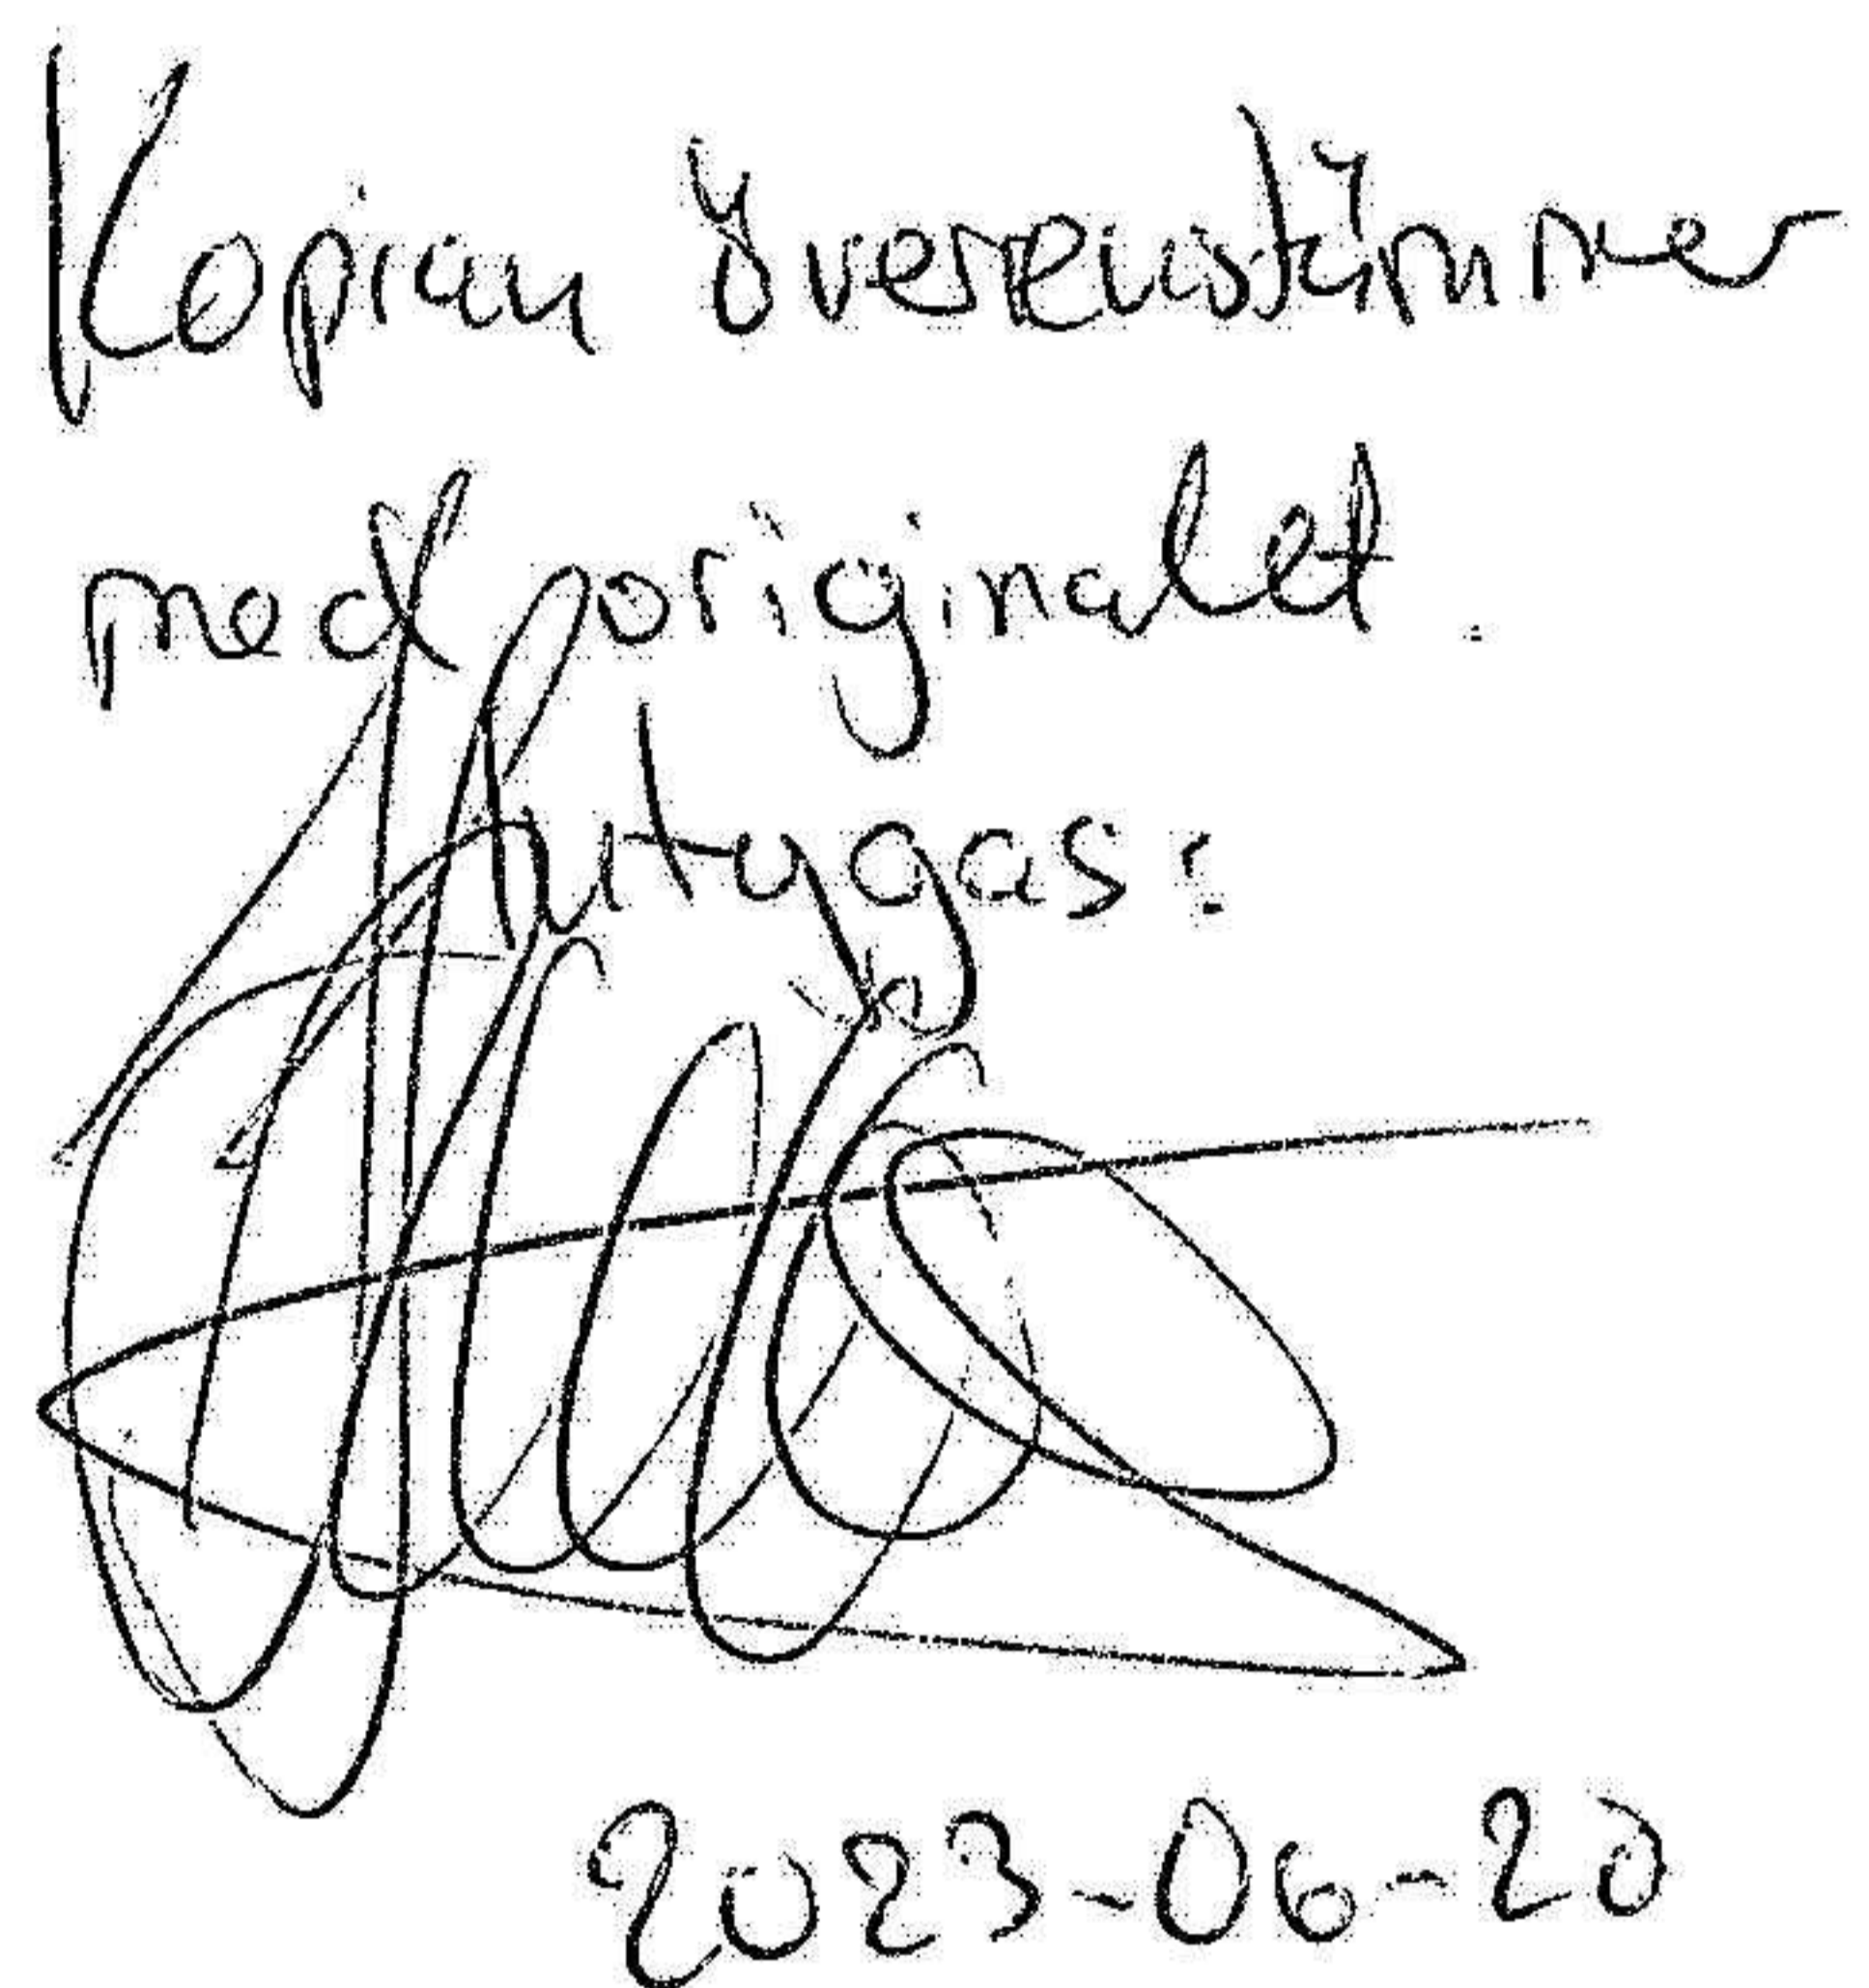 Kopian överensstämmer
med originalet.
Intygas:
2023-06-20